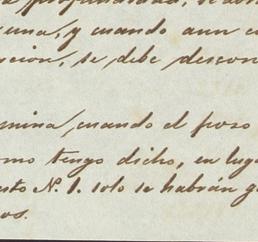 a profundidad, se de
cuna, y cuando aun c
cion, se debe descon
mina, cuando el pozo
omo tengo dicho, en lug
esto N. 1. solo se habrán g
os.